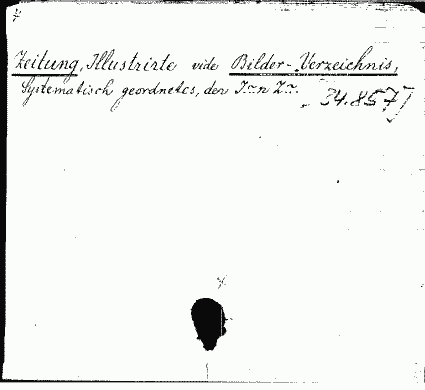 Zeitung, Illustrirte vide Bilder-Verzeichnis,
Systematisch geordnetes, der I.n Z.
34.857]